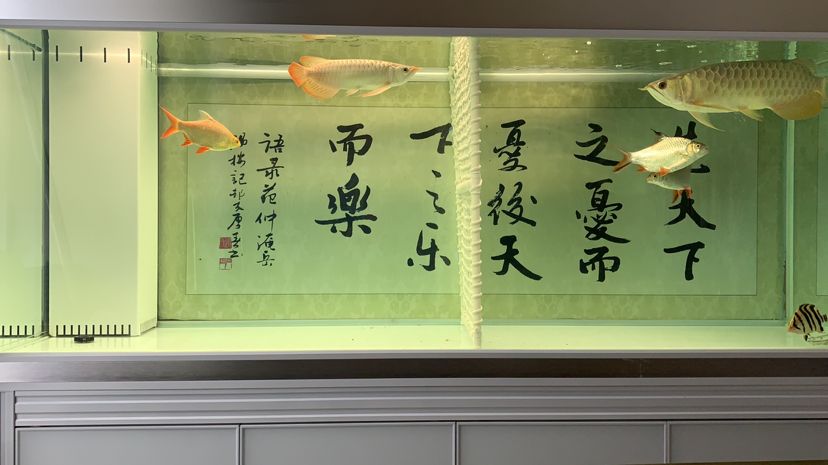 先天下
之憂而
憂後天
下之乐
而樂
語录范仲淹岳
阳楼記